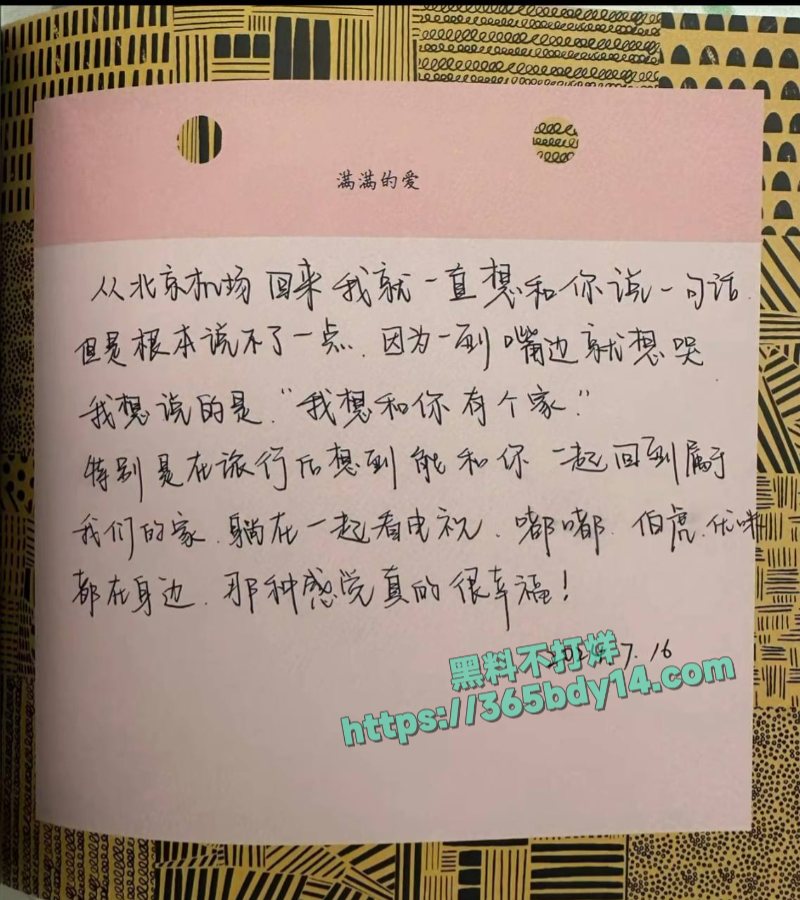 满满的爱
从北京机场回来我就一直想和你说一句话
但是根本说不了一点.因为一到嘴边就想哭
我想说的是."我想和你有个家."
特别是在旅行后想到能和你一起回到属于
我们的家.躺在一起看电视.嘟嘟.伯虎.优咪
都在身边.那种感觉真的很幸福!
7.16
黑料不打烊
https://365bdy14.com